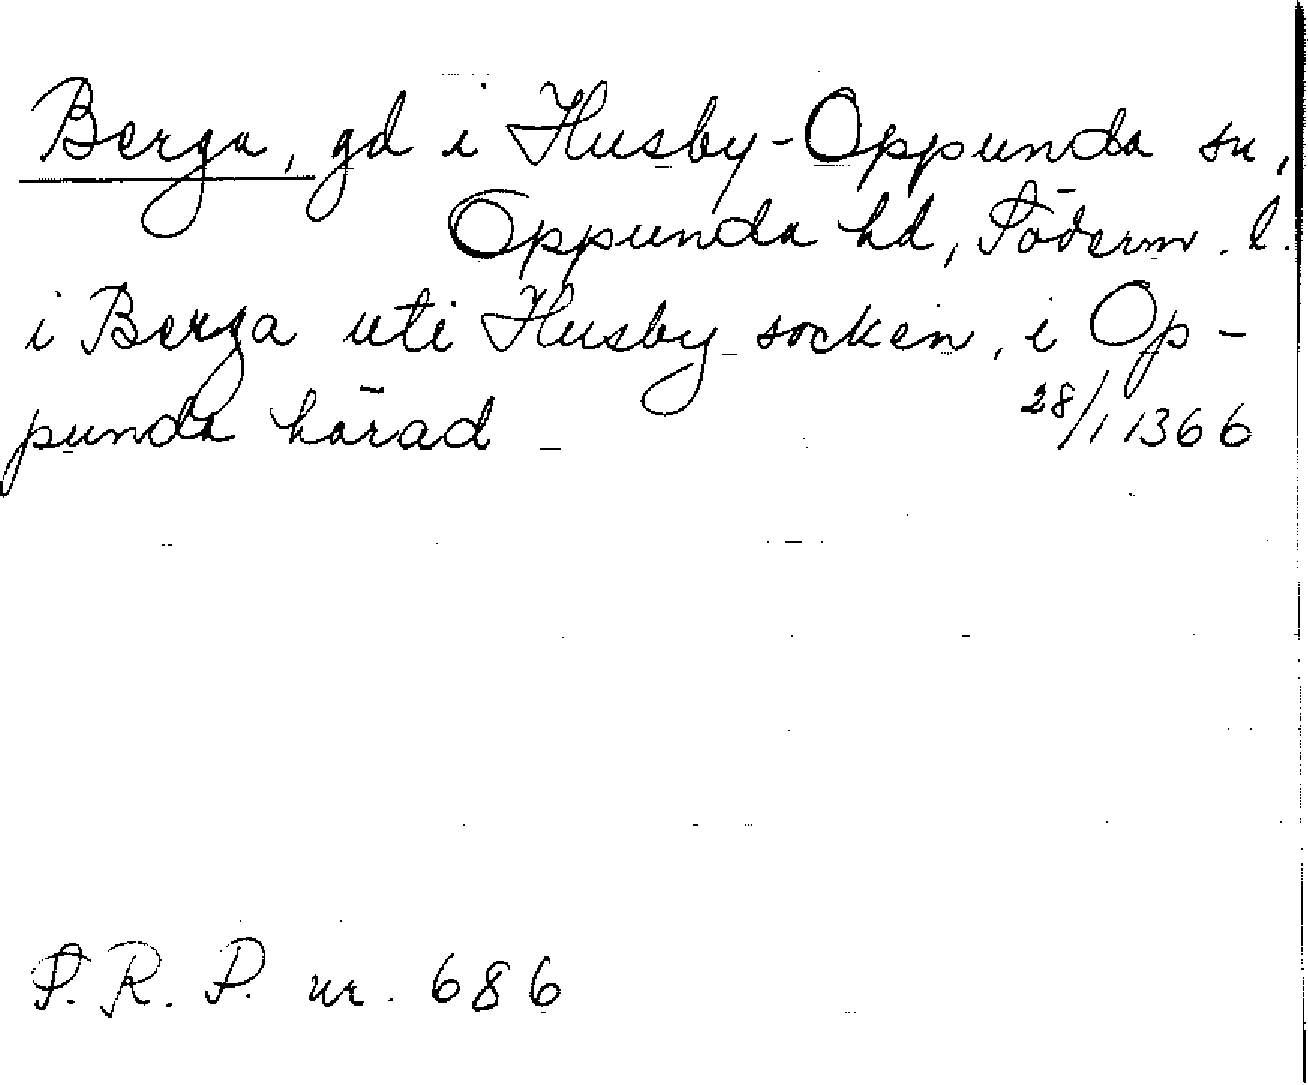 Berga, gd i Husby-Oppunda sn,
Oppunda hd, Söderm. l.
i Berga uti Husby socken, i Op-
punda härad 28/1 1366
S. R. P. nr. 686